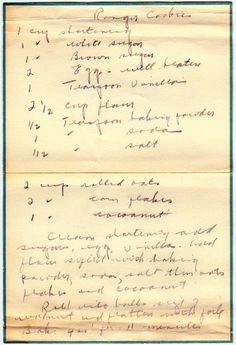 Ranger Cookies
1 cup shortening
1 " white sugar
1 " Brown sugar
2 Egg - well beaten
1 Teaspoon Vanilla
2 1/2 cup flour
1/2 Teaspoon baking powder
1 " soda
1/2 " salt
2 cup rolled oats
2 " corn flakes
1 " cocoanut
Cream shortening add
sugars, egg, vanilla. Add
flour sifted with baking
powder, soda, salt then oats
flakes, and cocoanut
Roll into balls size of
walnut and flatten with fork
Bake minutes